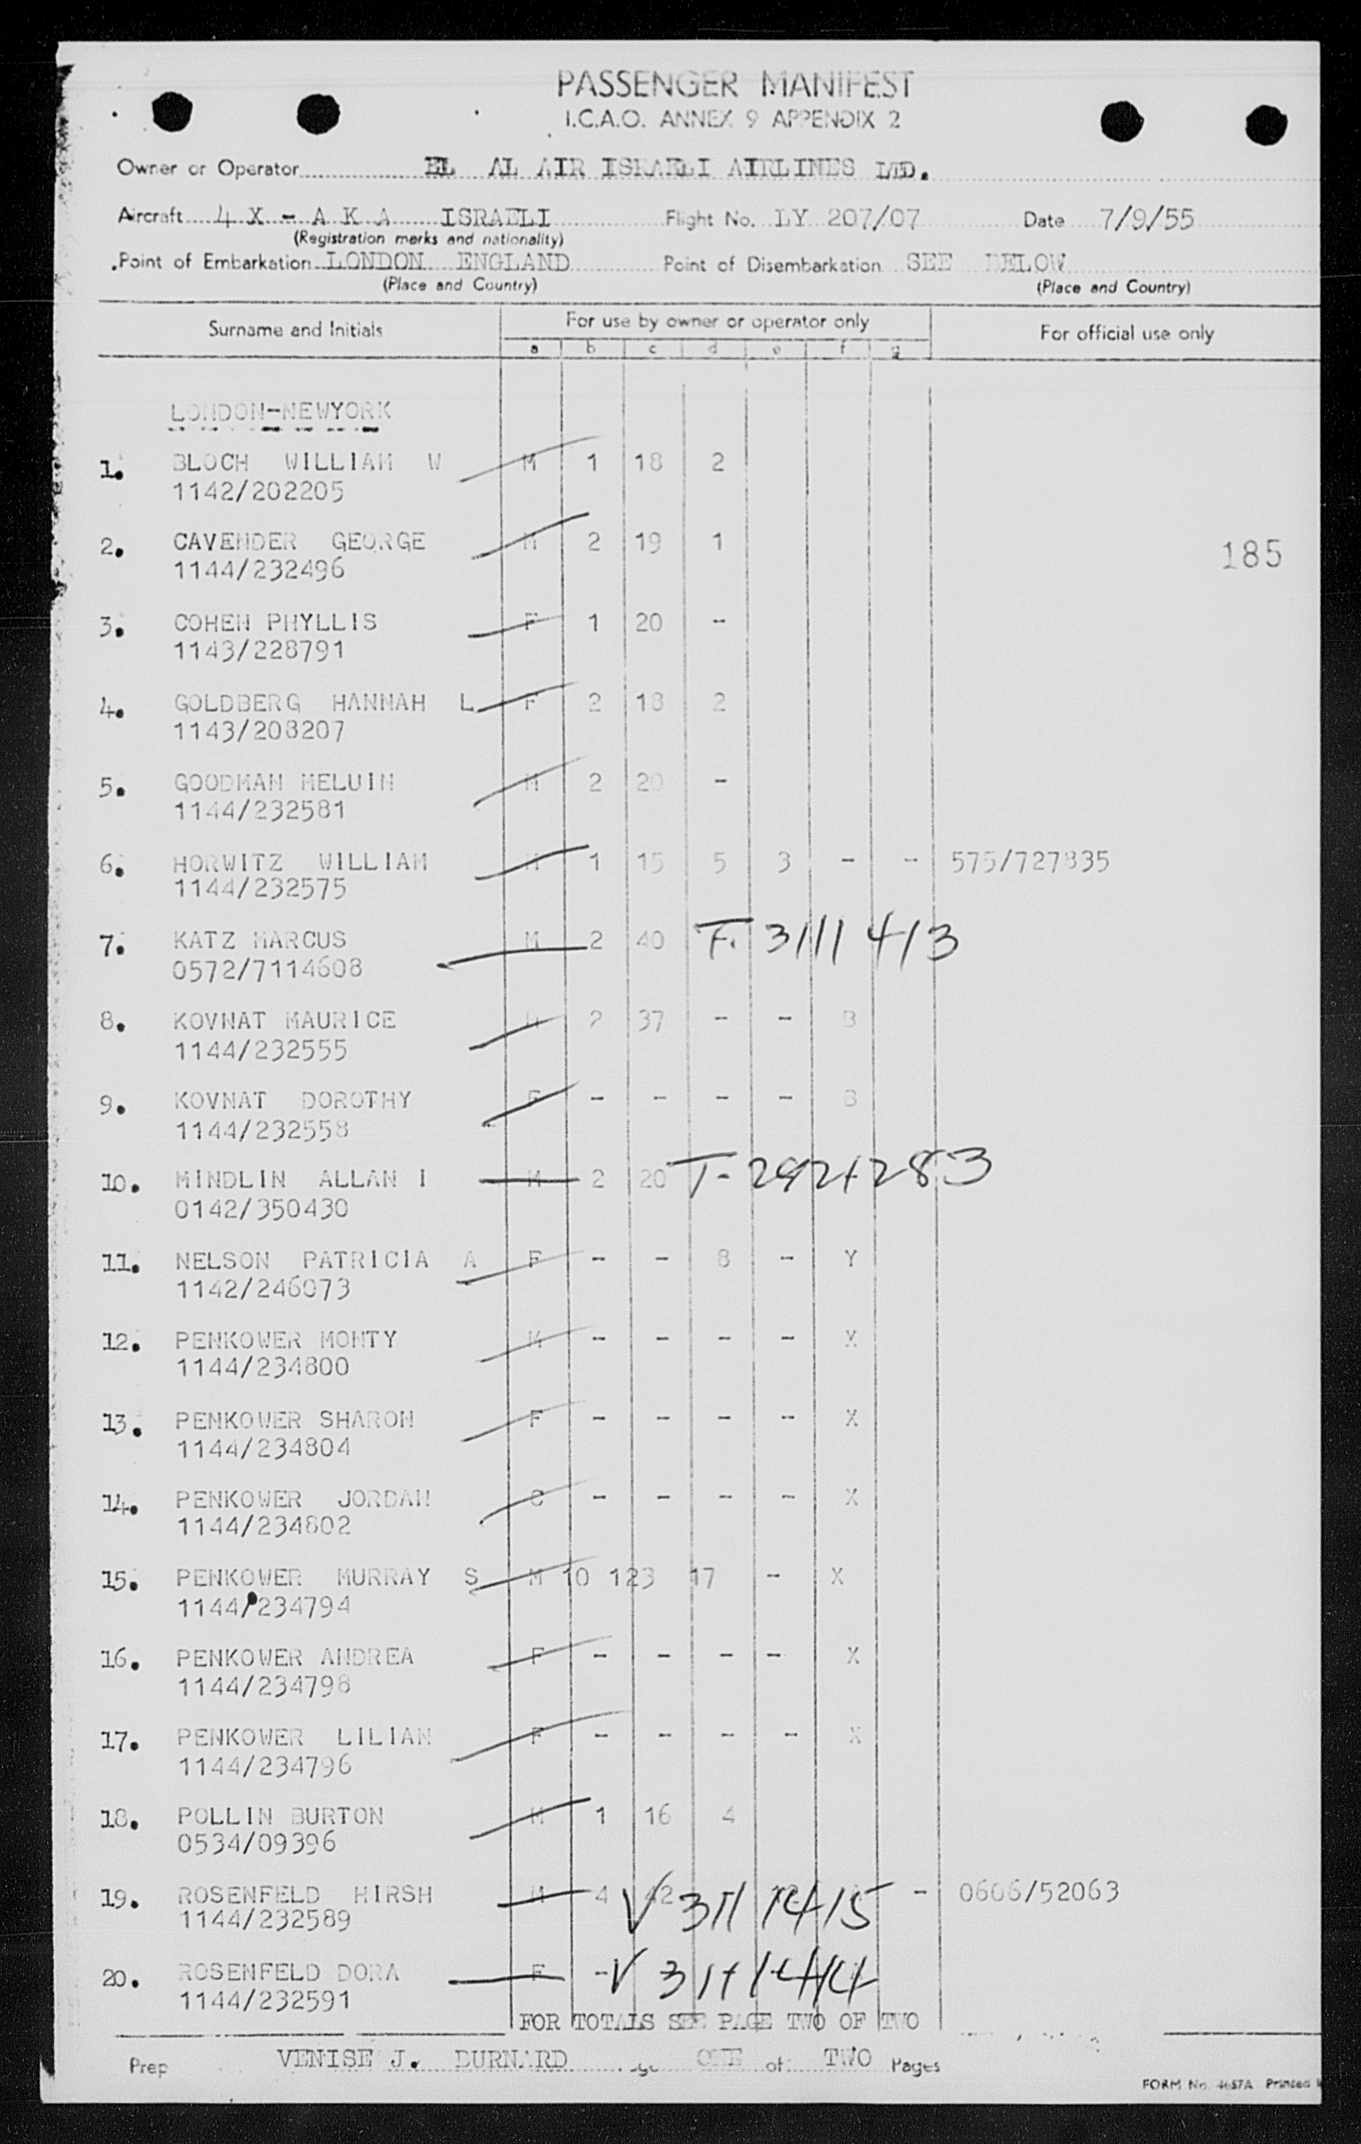 PASSENGER MANIFEST
I.C.A.O. ANNEX 9 APPENDIX 2
Owner or Operator EL AL AIR ISRAELI AIRLINES LTD.
Aircraft 4 X - A K A ISRAELI Flight No. LY 207/07 Date 7/9/55
(Registration marks and nationality)
Point of Embarkation LONDON ENGLAND Point of Disembarkation SEE BELOW
(Place and Country) (Place and Country)
Surname and Initials For use by owner or operator only For official use only
a b c d e f g
LONDON-NEWYORK
1. BLOCH WILLIAM W M 1 18 2
1142/202205
2. CAVENDER GEORGE M 2 19 1
1144/232496
185
3. COHEN PHYLLIS F 1 20 -
1143/228791
4. GOLDBERG HANNAH L F 2 18 2
1143/208207
5. GOODMAN MELUIN M 2 20 -
1144/232581
6. HORWITZ WILLIAM M 1 15 5 3 - - 575/727835
1144/232575
7. KATZ MARCUS M 2 40
0572/7114608
8. KOVNAT MAURICE M 2 37 - - B
1144/232555
9. KOVNAT DOROTHY F - - - - B
1144/232558
10. MINDLIN ALLAN I M 2 20
0142/350430
11. NELSON PATRICIA A F - - 8 - Y
1142/246073
12. PENKOWER MONTY M - - - - X
1144/234800
13. PENKOWER SHARON F - - - - X
1144/234804
14. PENKOWER JORDAN C - - - - X
1144/234802
15. PENKOWER MURRAY S M 10 123 17 - X
1144/234794
16. PENKOWER ANDREA F - - - - X
1144/234798
17. PENKOWER LILIAN F - - - - X
1144/234796
18. POLLIN BURTON M 1 16 4
0534/09396
19. ROSENFELD HIRSH M 4 42 - 0606/52063
1144/232589
20. ROSENFELD DORA F -
1144/232591
FOR TOTALS SEE PAGE TWO OF TWO
Prep VENISE J. BURNARD ONE of TWO Pages
FORM No. 4657A Printed